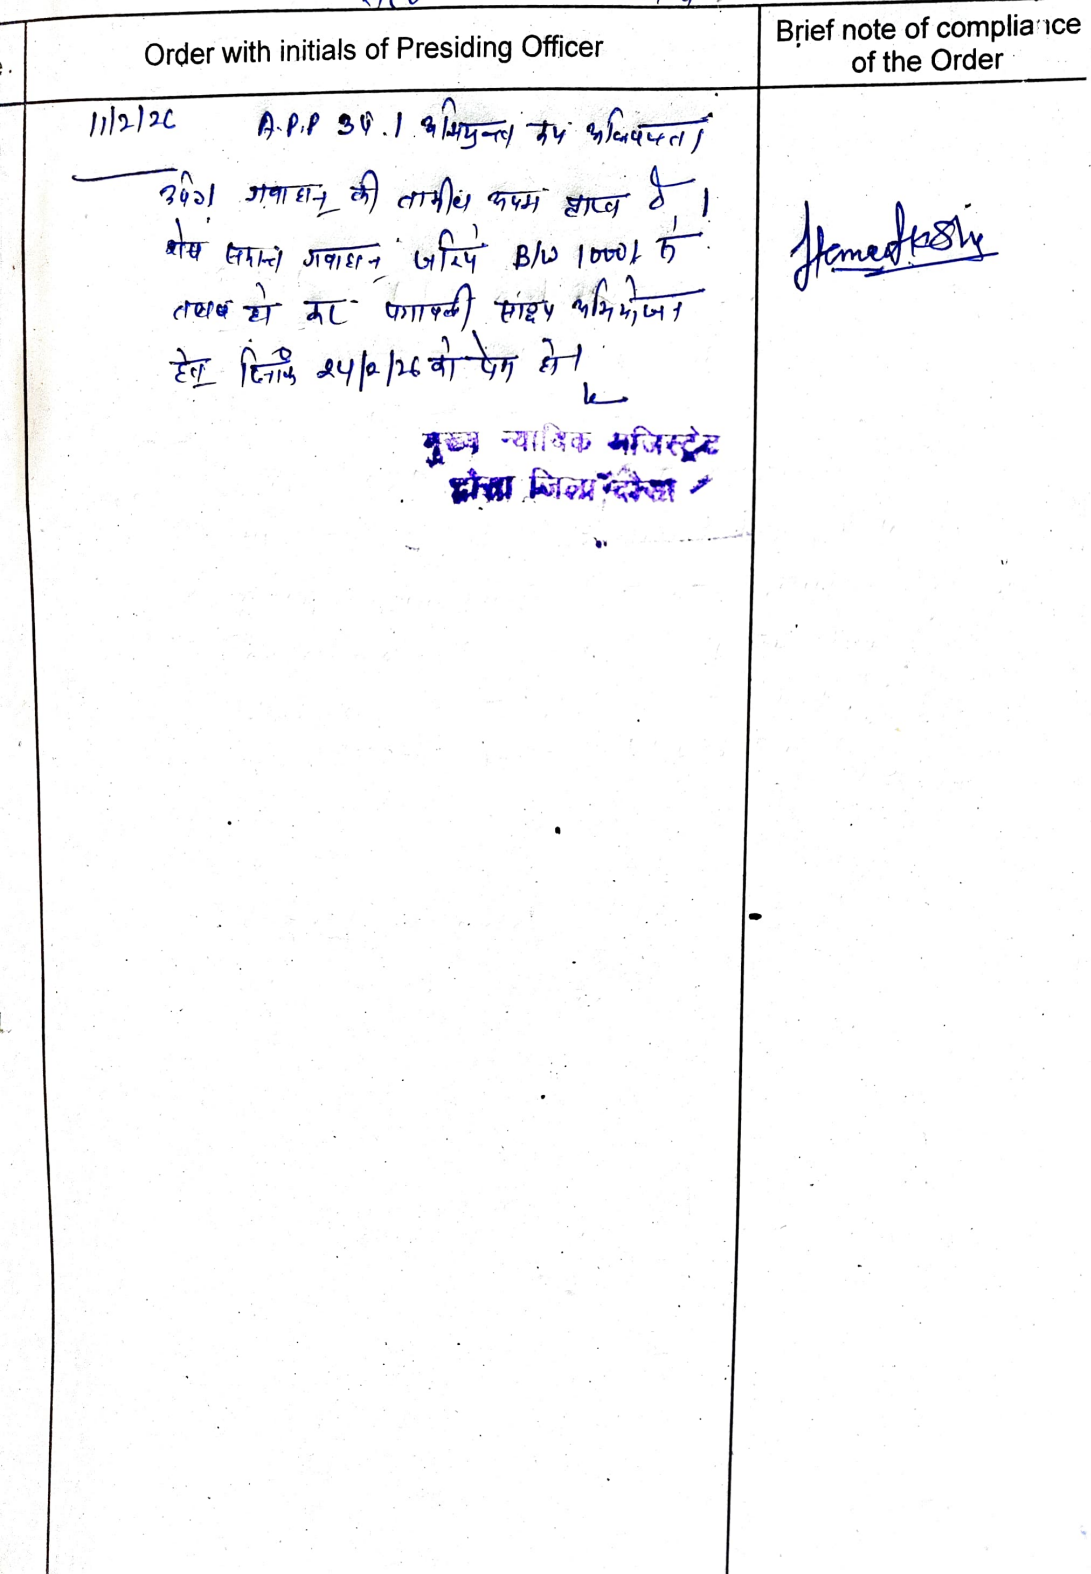 Order with initials of Presiding Officer
Brief note of compliance
of the Order
11/2/26 A.P.P उप.। अभियुक्त मय अधिवक्ता।
गवाहान की तामील अदम प्राप्त है।
शेष समस्त गवाहान जरिये B/W 1000/ से
तलब हो कर पत्रावली साक्ष्य अभियोजन
हेतु दिनांक 24/2/26 को पेश हो।
मुख्य न्यायिक मजिस्ट्रेट
दौसा जिला दौसा